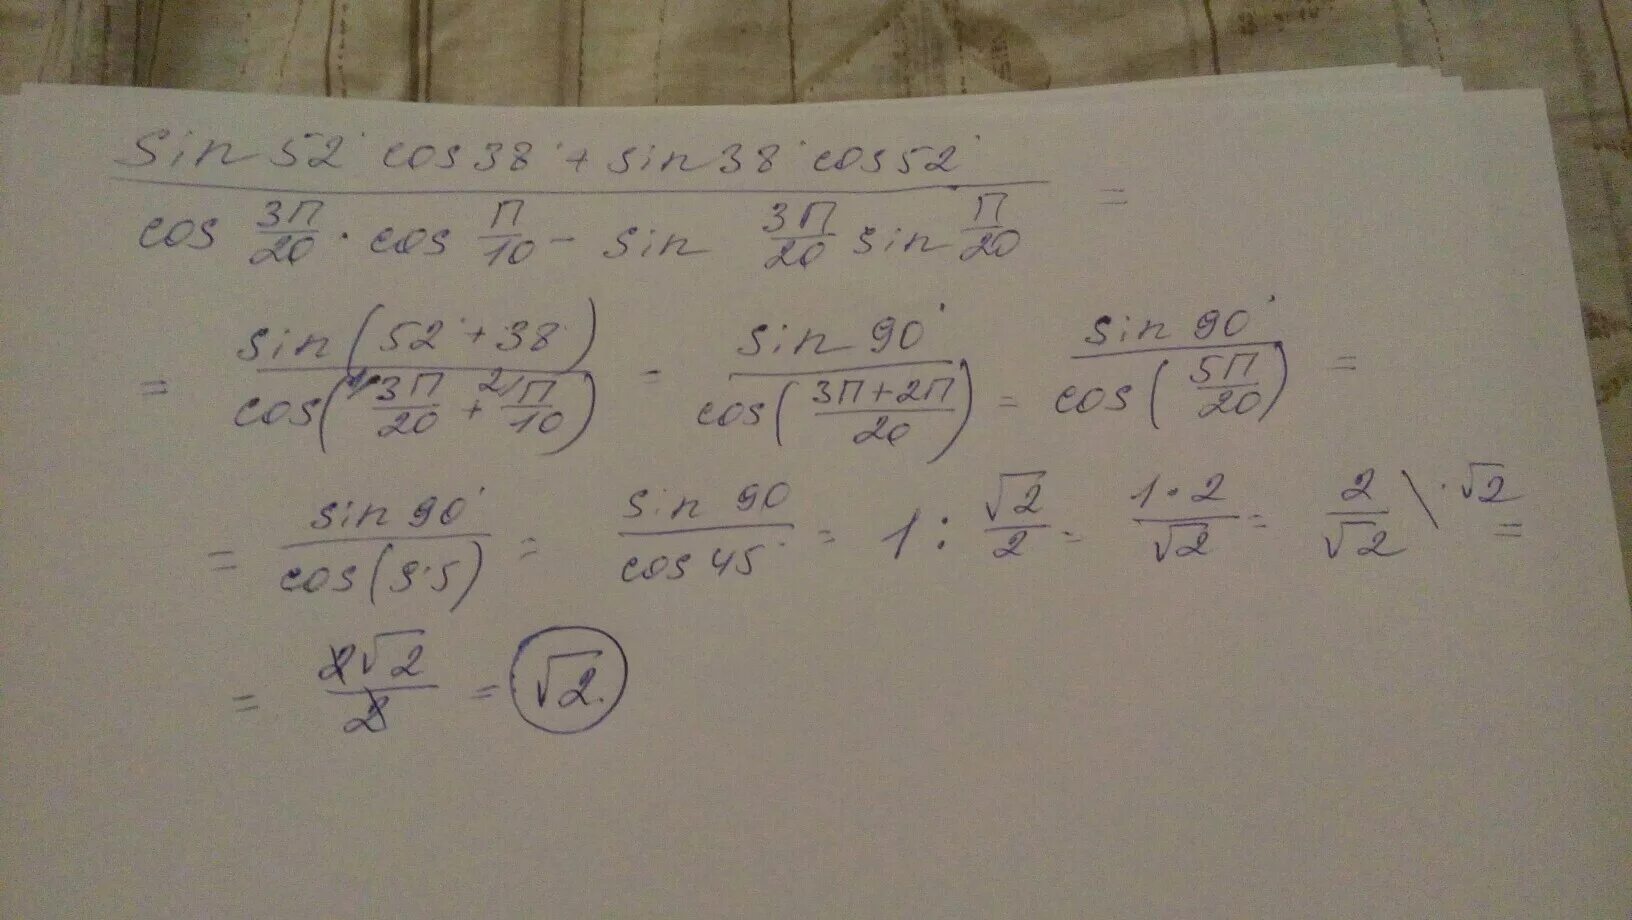 sin 52° cos 38° + sin 38° cos 52°
cos 3π/20 · cos π/10 - sin 3π/20 sin π/20 =
= sin(52° + 38°) / cos(3π/20 + 2/π/10) = sin 90° / cos(3π+2π/20) = sin 90° / cos(5π/20) =
= sin 90° / cos(9·5) = sin 90 / cos 45° = 1 : √2/2 = 1·2/√2 = 2/√2 \ ·√2 =
= 2√2/2 = √2.